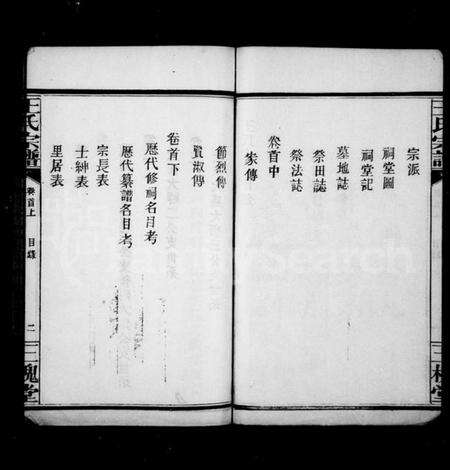 宗派
祠堂圖
祠堂記
墓地誌
祭田誌
祭法誌
卷首中
家傳
節烈傳
賢淑傳
卷首下
歷代修祠名目考
歷代纂譜名目考
宗長表
士紳表
里居表
王氏宗譜
卷首上
目錄
二
三槐堂